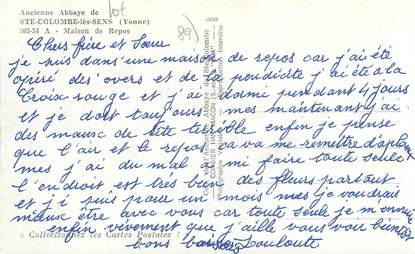 Ancienne Abbaye de
STE-COLOMBE-lès-SENS (Yonne)
103-54 A - Maison de Repos
lot
89)
Chers frère et Sœur
je suis dans une maison de repos car j'ai été
opéré des overs et de la pendicite j'ai été a la
Croix rouge et j'ai dormi pendant 4 jours
et je dort toujours mes maintenant j'ai
des maux de tête terrible enfin je pense
que l'air et le repos ca va me remettre d'aplomb
mes j'ai du mal a mi faire toute seule
l'endroit est très bien des fleurs partout
et j'i suis pour un mois mes je voudrai
mieux être avec vous car toute seule je m'ennui
enfin vivement que j'aille vous voir bientôt
bons baisers Louloute
« Collectionnez les Cartes Postales »